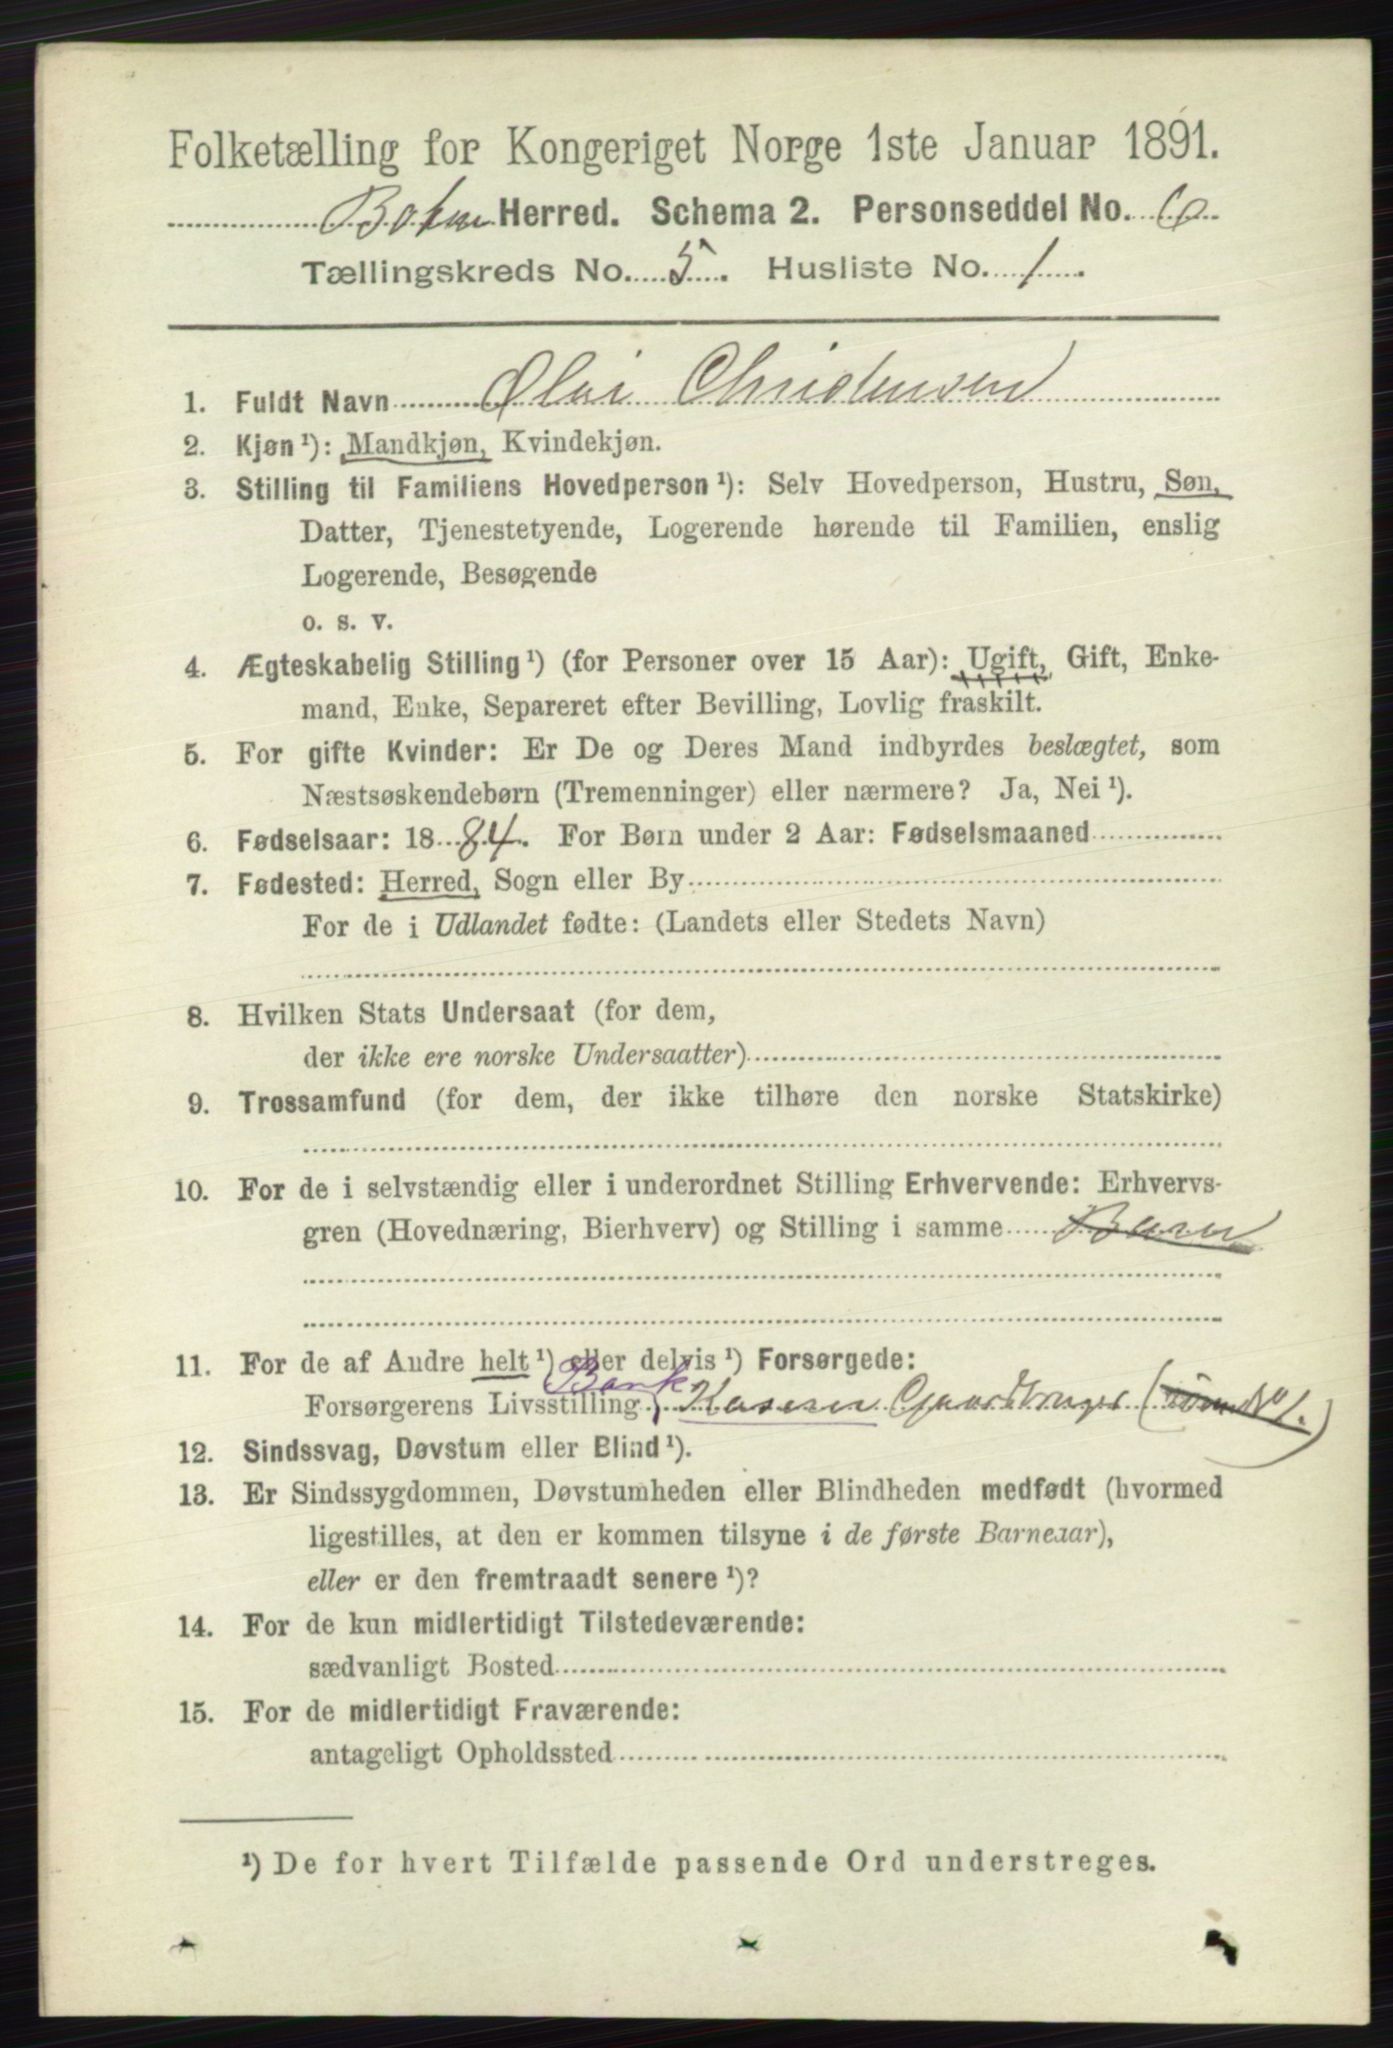 Folketælling for Kongeriget Norge 1ste Januar 1891.
Bokn Herred. Schema 2. Personseddel No. 6.
Tællingskreds No. 5. Husliste No. 1.
1. Fuldt Navn Olai Christensen
2. Kjøn ¹): Mandkjøn, Kvindekjøn.
3. Stilling til Familiens Hovedperson ¹): Selv Hovedperson, Hustru, Søn,
Datter, Tjenestetyende, Logerende hørende til Familien, enslig
Logerende, Besøgende
o. s. v.
4. Ægteskabelig Stilling ¹) (for Personer over 15 Aar): Ugift, Gift, Enke-
mand, Enke, Separeret efter Bevilling, Lovlig fraskilt.
5. For gifte Kvinder: Er De og Deres Mand indbyrdes beslægtet, som
Næstsøskendebørn (Tremenninger) eller nærmere? Ja, Nei ¹).
6. Fødselsaar: 1884. For Børn under 2 Aar: Fødselsmaaned
7. Fødested: Herred, Sogn eller By
For de i Udlandet fødte: (Landets eller Stedets Navn)
8. Hvilken Stats Undersaat (for dem,
der ikke ere norske Undersaatter)
9. Trossamfund (for dem, der ikke tilhøre den norske Statskirke)
10. For de i selvstændig eller i underordnet Stilling Erhvervende: Erhvervs-
gren (Hovednæring, Bierhverv) og Stilling i samme Barn
11. For de af Andre helt ¹) eller delvis ¹) Forsørgede:
Bank
Forsørgerens Livsstilling Kaserer Gaardbruger ( No 1.)
12. Sindssvag, Døvstum eller Blind ¹).
13. Er Sindssygdommen, Døvstumheden eller Blindheden medfødt (hvormed
ligestilles, at den er kommen tilsyne i de første Barneaar),
eller er den fremtraadt senere ¹)?
14. For de kun midlertidigt Tilstedeværende:
sædvanligt Bosted
15. For de midlertidigt Fraværende:
antageligt Opholdssted
¹) De for hvert Tilfælde passende Ord understreges.